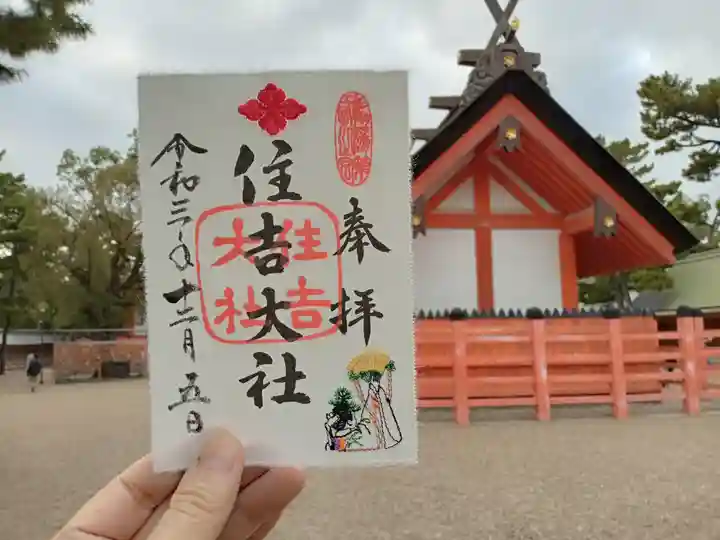 奉拝
住吉大社
住吉大社
令和三年十二月五日